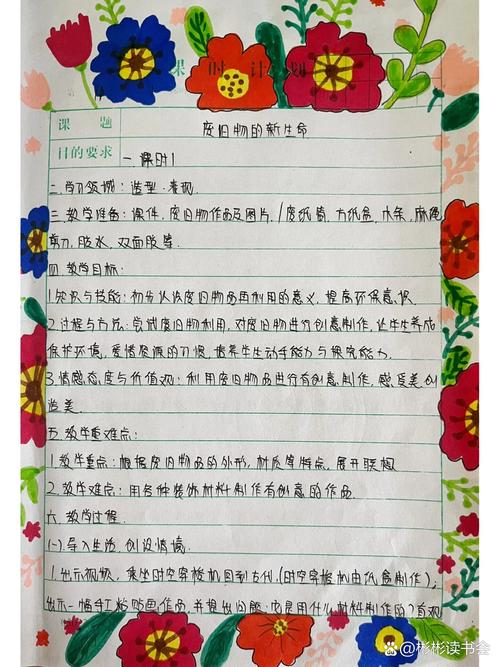 课时计划
课题 废旧物的新生命
目的要求 一 课时1
二.学习领域:造型·表现.
三 教学准备:课件,废旧物作品及图片,/废纸筒,方纸盒,木条,麻绳
剪刀,胶水,双面胶等.
四 教学目标:
1.知识与技能:初步认识废旧物品再利用的意义,提高环保意识.
2.过程与方法:尝试废旧物利用,对废旧物进行创意制作,让学生养成
保护环境,爱惜资源的习惯,培养学生动手能力与探究能力.
3.情感态度与价值观:利用废旧物品进行有创意制作,感受美,创
造美.
五 教学重难点:
1.教学重点:根据废旧物品的外形,材质等特点,展开联想
2.教学难点:用各种装饰材料制作有创意的作品.
六.教学过程.
(一).导入生活,创设情境.
1.出示视频,乘坐时空穿梭机回到古代,(时空穿梭机由纸盒制作);
出示一幅手工粘贴画作品,并提出问题:它是用什么材料制作的?直观
头条 @彬彬读书会